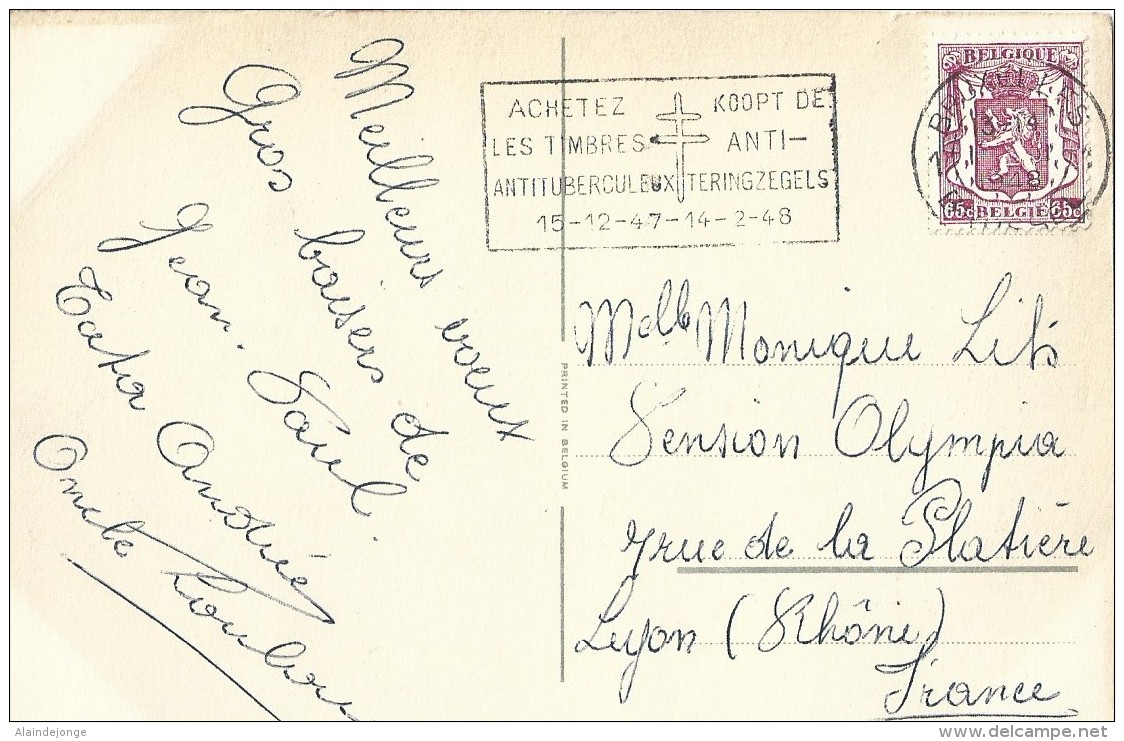 Meilleurs voeux
Gros baisers de
Jean-Paul.
Tatia Andrée
Oncle Loulou
ACHETEZ
LES TIMBRES
ANTITUBERCULEUX
KOOPT DE
ANTI-
TERINGZEGELS
15-12-47-14-2-48
BELGIQUE
65c BELGIË 65c
PRINTED IN BELGIUM
Melle Monique Lits
Pension Olympia
7 rue de la Platière
Lyon (Rhône)
France
Alaindejonge
www.delcampe.net